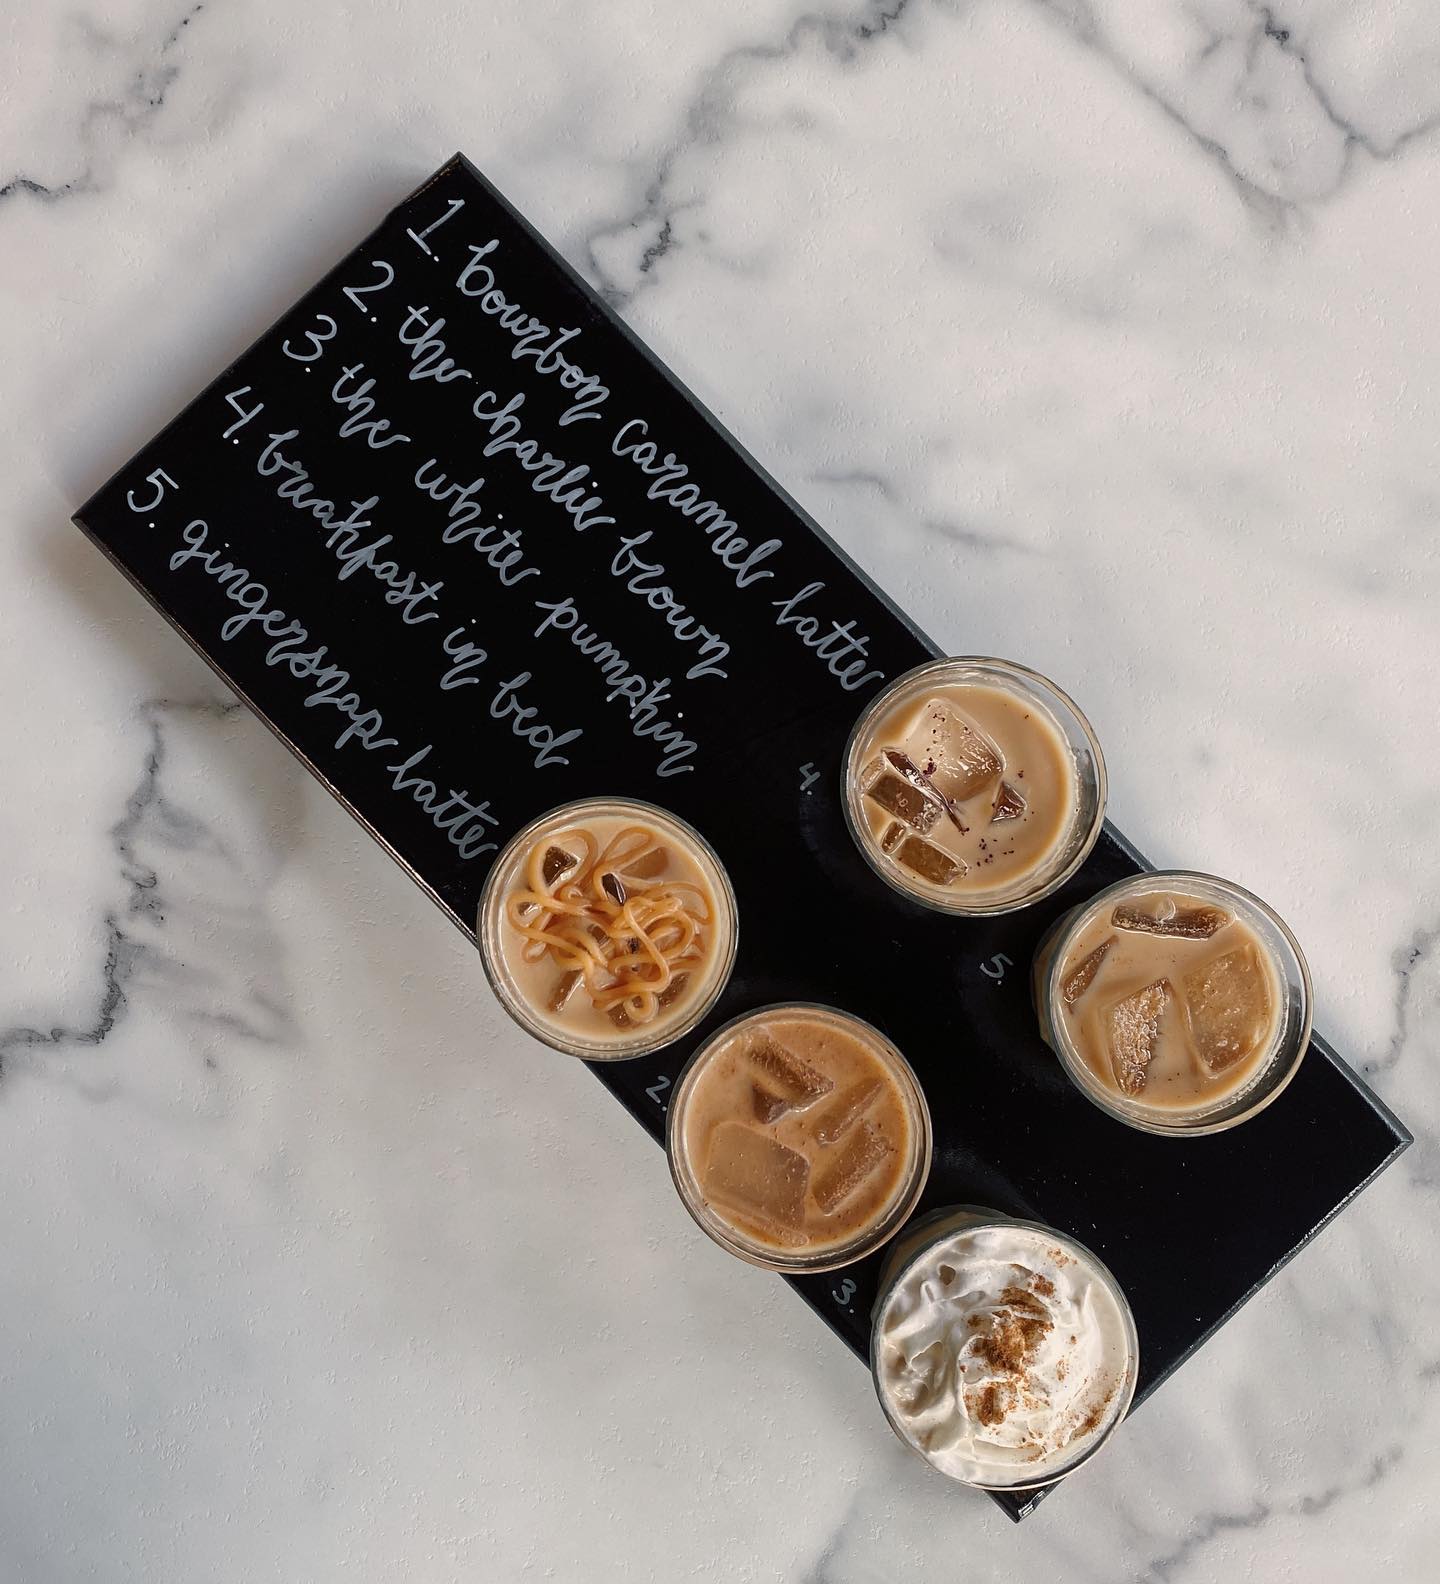 1. bourbon caramel latte
2. the charlie brown
3. the white pumpkin
4. breakfast in bed
5. gingersnap latte
4.
5.
2.
3.